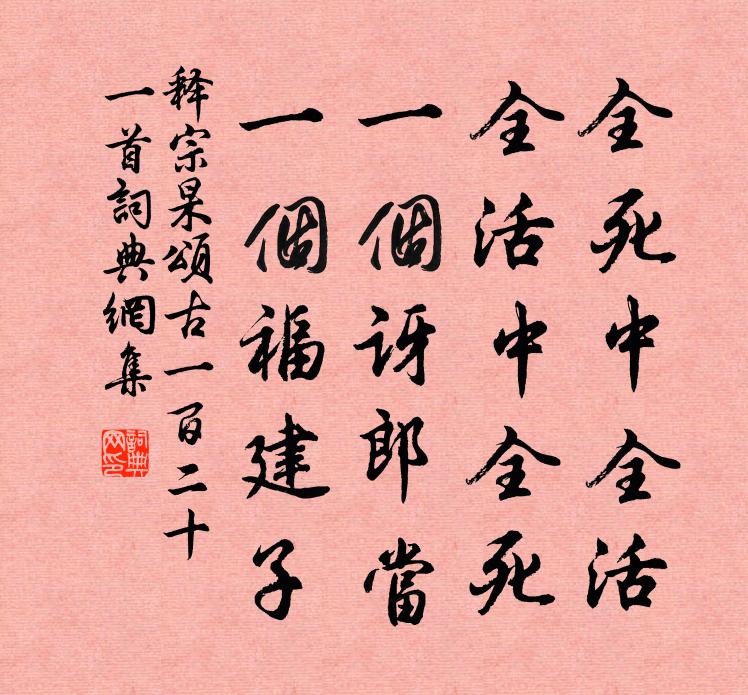 全死中全活
全活中全死
一個訝郎當
一個福建子
釋宗杲頌古一百二十
一首詞典網集
詞典网印